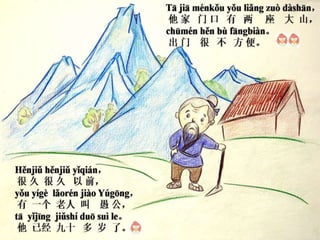 Tā jiā ménkǒu yǒu liǎng zuò dàshān，
他 家 门 口 有 两 座 大 山，
chūmén hěn bù fāngbiàn。
出 门 很 不 方 便。
Hěnjiǔ hěnjiǔ yǐqián，
很 久 很 久 以 前，
yǒu yígè lǎorén jiào Yúgōng，
有 一 个 老 人 叫 愚 公，
tā yǐjīng jiǔshí duō suì le。
他 已 经 九 十 多 岁 了。